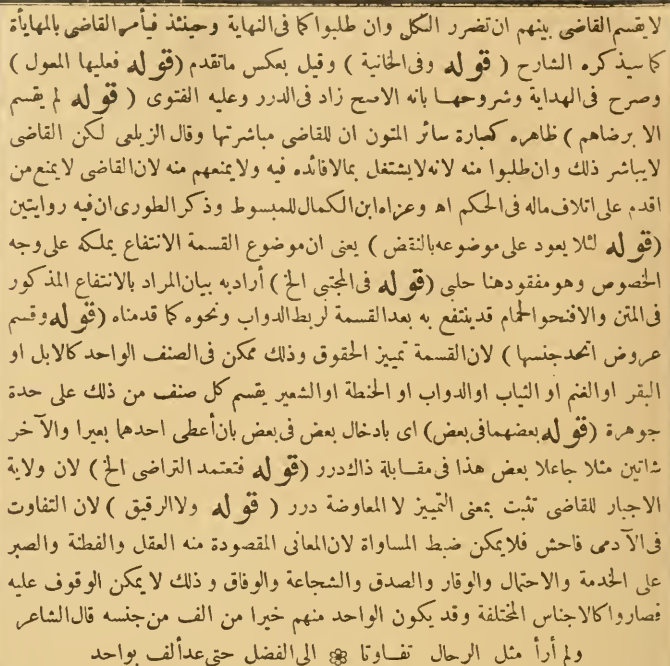 لا يقسم القاضى بينهم ان تضرر الكل وان طلبوا كما فى النهاية وحينئذ فيأمر القاضى بالمهايأة
كما سيذكره الشارح ( قوله وفى الخانية ) وقيل بعكس ماتقدم (قوله فعليها المعول )
وصرح فى الهداية وشروحها بانه الاصح زاد فى الدرر وعليه الفتوى ( قوله لم يقسم
الا برضاهم ) ظاهره كعبارة سائر المتون ان للقاضى مباشرتها وقال الزيلعى لكن القاضى
لايباشر ذلك وان طلبوا منه لانه لايشتغل بمالافائده فيه ولايمنعهم منه لان القاضى لايمنع من
اقدم على اتلاف ماله فى الحكم اه وعزاه ابن الكمال للمبسوط وذكر الطورى ان فيه روايتين
(قوله لئلا يعود على موضوعه بالنقض ) يعنى ان موضوع القسمة الانتفاع يملكه على وجه
الخصوص وهو مفقود هنا حلبى (قوله فى المجتبى الخ ) أراد به بيان المراد بالانتفاع المذكور
فى المتن والافنحو الحمام قد ينتفع به بعد القسمة لربط الدواب ونحوه كما قدمناه (قوله وقسم
عروض اتحد جنسها ) لان القسمة تمييز الحقوق وذلك ممكن فى الصنف الواحد كالابل او
البقر او الغنم او الثياب او الدواب او الحنطة او الشعير يقسم كل صنف من ذلك على حدة
جوهرة (قوله بعضهما فى بعض) اى بادخال بعض فى بعض بان أعطى احدهما بعيرا والآخر
شاتين مثلا جاعلا بعض هذا فى مقابلة ذاك درر (قوله فتعتمد التراضى الخ ) لان ولاية
الاجبار للقاضى تثبت بمعنى التمييز لا المعاوضة درر ( قوله ولا الرقيق ) لان التفاوت
فى الآدمى فاحش فلا يمكن ضبط المساواة لان المعانى المقصودة منه العقل والفطنة والصبر
على الخدمة والاحتمال والوقار والصدق والشجاعة والوفاق وذلك لايمكن الوقوف عليه
فصاروا كالاجناس المختلفة وقد يكون الواحد منهم خيرا من الف من جنسه قال الشاعر
ولم أر أمثل الرجال تفاوتا ۞ الى الفضل حتى عد ألف بواحد